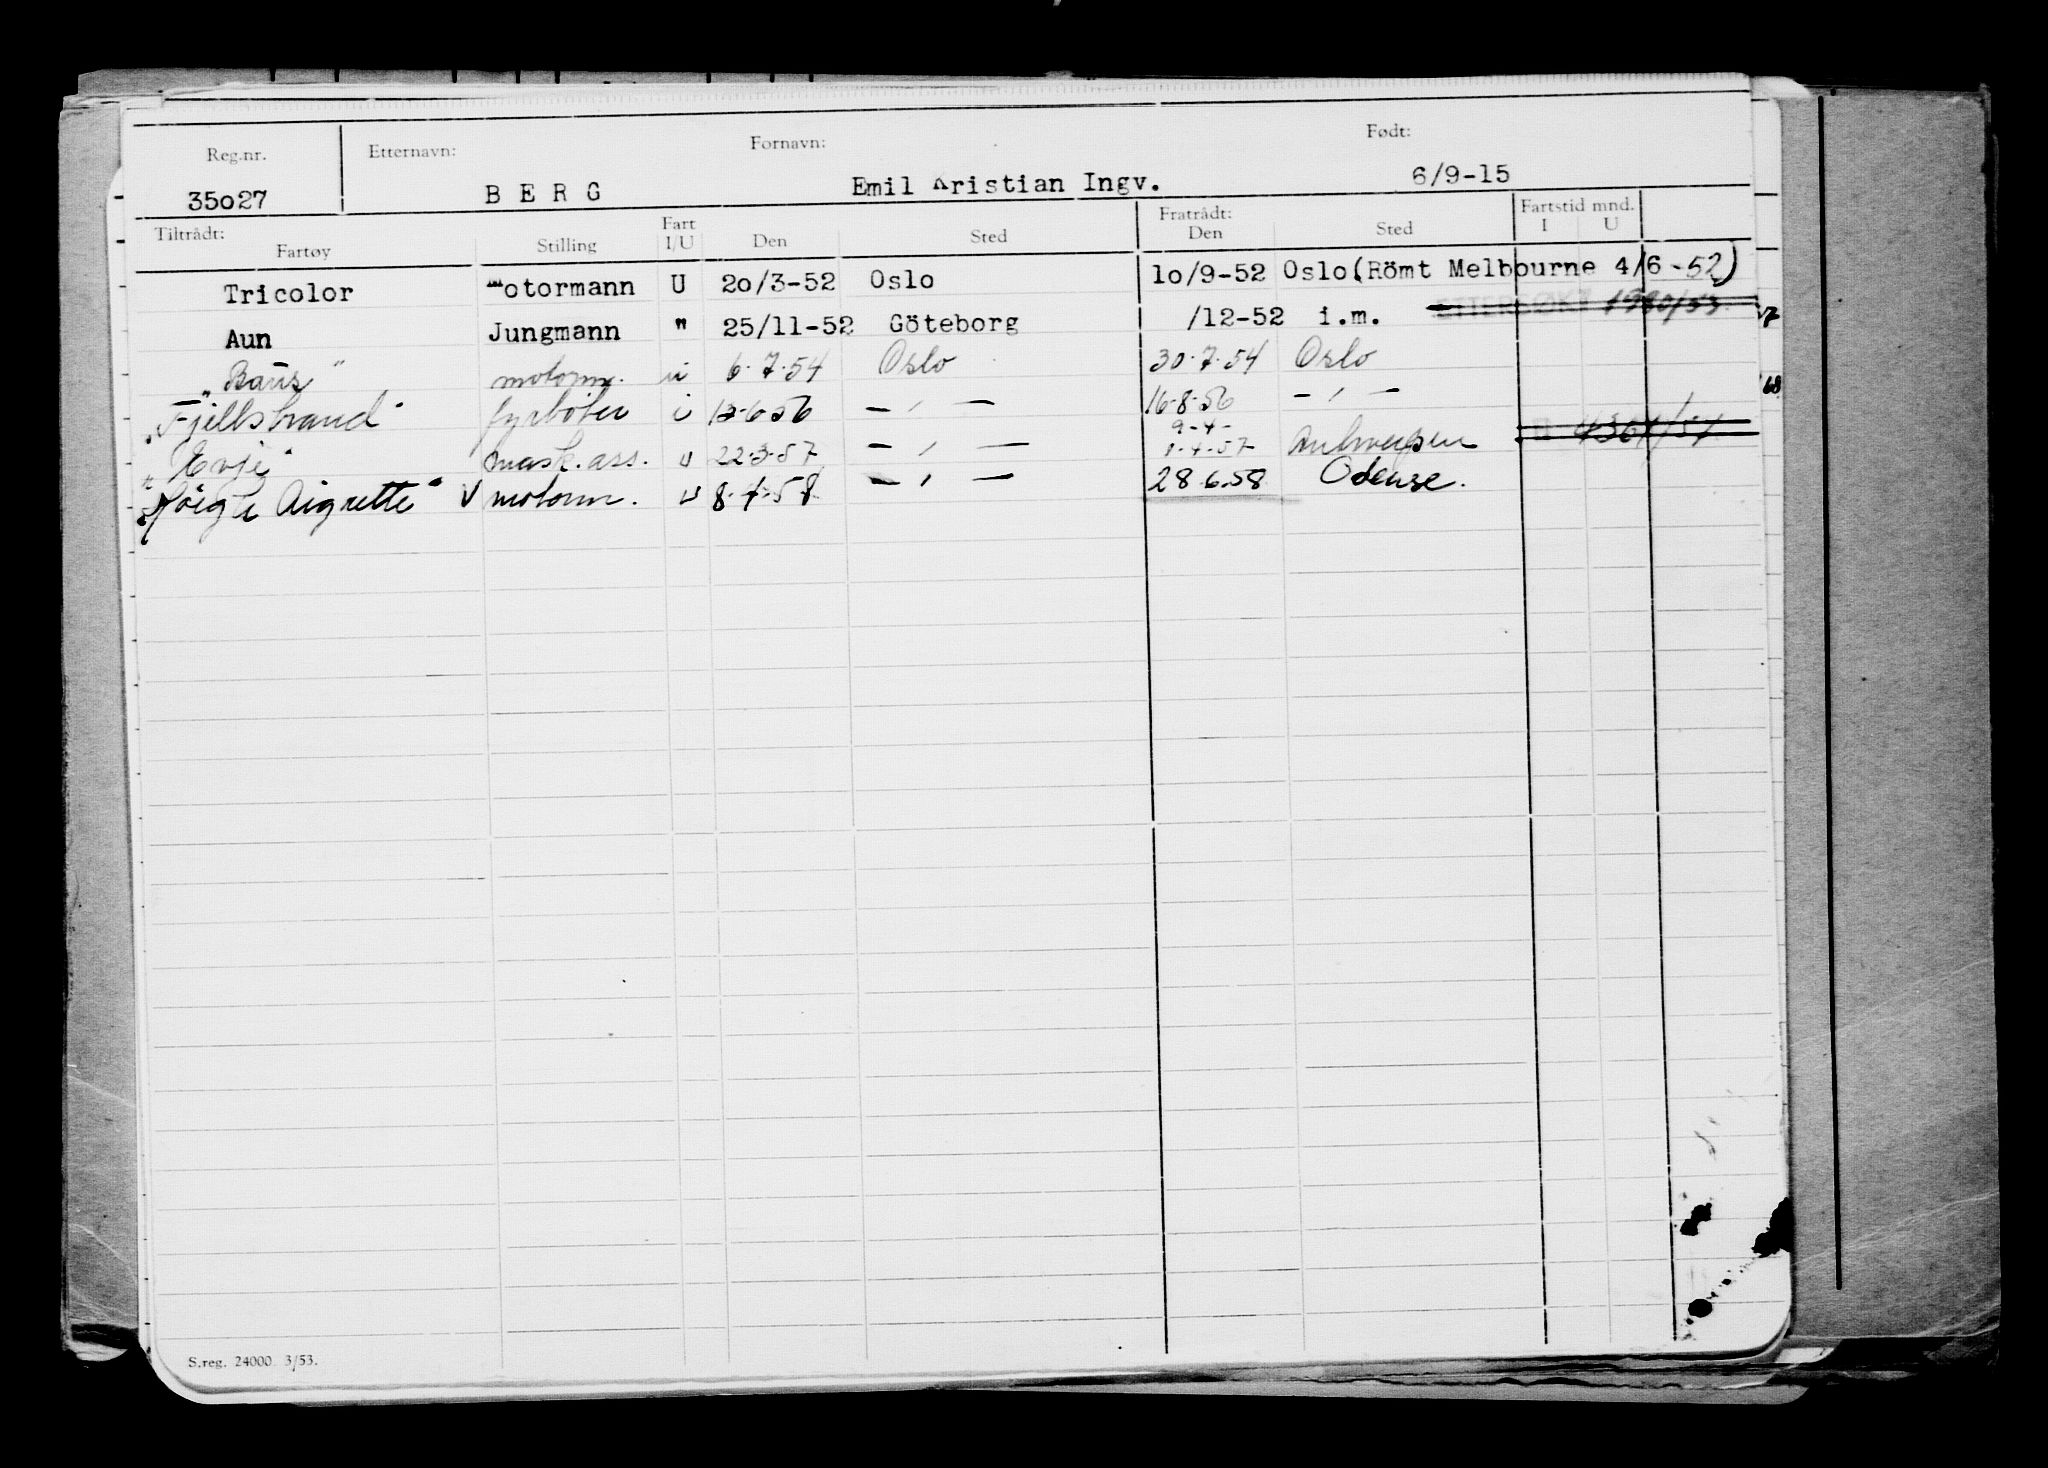 Reg.nr. Etternavn: Fornavn: Født:
35o27 B E R G Emil Kristian Ingv. 6/9-15
Tiltrådt: Fratrådt: Fartstid mnd.
Fartøy Stilling Fart I/U Den Sted Den Sted I U
Tricolor motormann U 2o/3-52 Oslo 1o/9-52 Oslo (Römt Melbourne 4/6-52)
Aun Jungmann " 25/11-52 Göteborg /12-52 i.m. ETTERSØKT
"Baus" motorm. u 6.7.54 Oslo 30.7.54 Oslo
"Fjellstrand" fyrbøter i 6.56 — " — 16-8-56 — " —
9-4-
"Evje" mask.ass. u 22.3.57 — " — 1-4-57 Antwerpen
Höegh Aigrette" V motorm. u 8.4.58 — " — 28.6.58 Odense.
S.reg. 24000. 3/53.